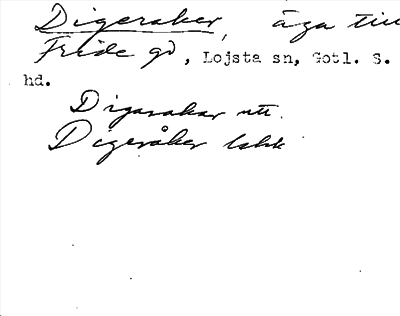 Digeraker, äga till
Fride gd, Lojsta sn, Gotl. S.
hd.
Digarakar utt.
Digeråker lokk